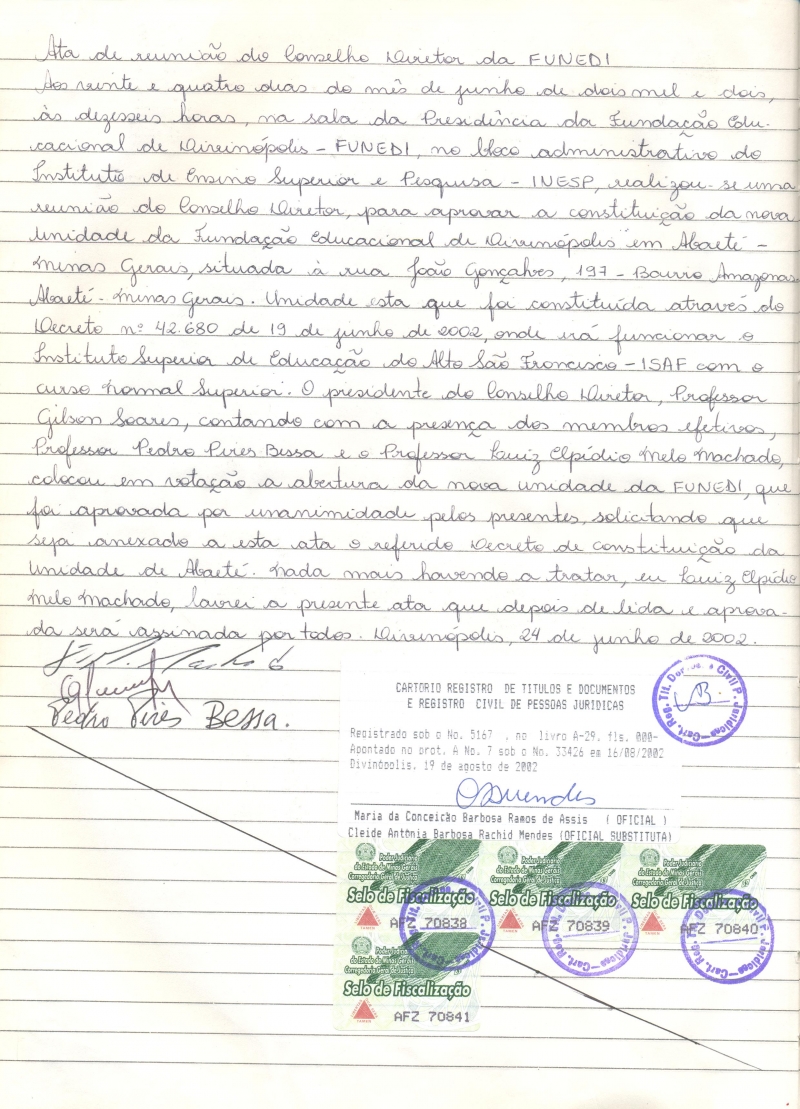 Ata de reunião do Conselho Diretor da FUNEDI
Aos vinte e quatro dias do mês de junho de dois mil e dois,
às dezesseis horas, na sala da Presidência da Fundação Edu-
cacional de Divinópolis - FUNEDI, no bloco administrativo do
Instituto de Ensino Superior e Pesquisa - INESP, realizou-se uma
reunião do Conselho Diretor, para aprovar a constituição da nova
unidade da Fundação Educacional de Divinópolis em Abaeté -
Minas Gerais, situada à rua João Gonçalves, 197 - Bairro Amazonas
Abaeté - Minas Gerais. Unidade esta que foi constituída através do
Decreto nº 42.680 de 19 de junho de 2002, onde irá funcionar o
Instituto Superior de Educação do Alto São Francisco - ISAF com o
curso Normal Superior. O presidente do Conselho Diretor, Professor
Gilson Soares, contando com a presença dos membros efetivos,
Professor Pedro Pires Bessa e o Professor Luiz Elpídio Melo Machado,
colocou em votação a abertura da nova unidade da FUNEDI, que
foi aprovada por unanimidade pelos presentes, solicitando que
seja anexado a esta ata o referido Decreto de constituição da
Unidade de Abaeté. Nada mais havendo a tratar, eu Luiz Elpídio
Melo Machado, lavrei a presente ata que depois de lida e aprova-
da será assinada por todos. Divinópolis, 24 de junho de 2002.
Pedro Pires Bessa.
CARTORIO REGISTRO DE TITULOS E DOCUMENTOS
E REGISTRO CIVIL DE PESSOAS JURIDICAS
Registrado sob o No. 5167 , no livro A-29, fls. 000-
Apontado no prot. A No. 7 sob o No. 33426 em 16/08/2002
Divinópolis, 19 de agosto de 2002
Maria da Conceição Barbosa Ramos de Assis ( OFICIAL )
Cleide Antônia Barbosa Rachid Mendes (OFICIAL SUBSTITUTA)
Poder Judiciário
do Estado de Minas Gerais
Corregedoria Geral de Justiça
Selo de Fiscalização
AFZ 70838
Poder Judiciário
do Estado de Minas Gerais
Corregedoria Geral de Justiça
Selo de Fiscalização
AFZ 70839
Poder Judiciário
do Estado de Minas Gerais
Corregedoria Geral de Justiça
Selo de Fiscalização
AFZ 70840
Poder Judiciário
do Estado de Minas Gerais
Corregedoria Geral de Justiça
Selo de Fiscalização
AFZ 70841